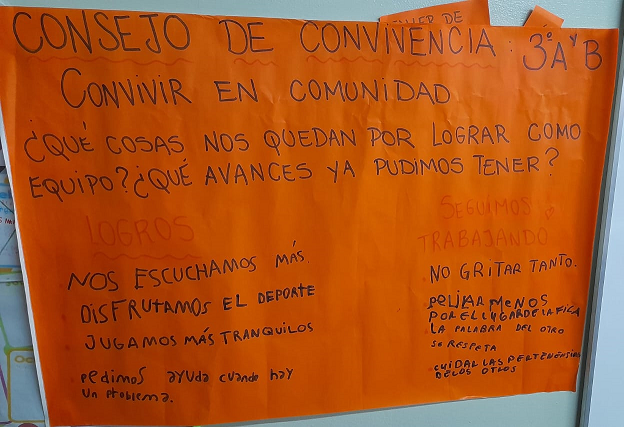 LLER DE
CONSEJO DE CONVIVENCIA: 3° A Y B
CONVIVIR EN COMUNIDAD
¿QUÉ COSAS NOS QUEDAN POR LOGRAR COMO
EQUIPO? ¿QUÉ AVANCES YA PUDIMOS TENER?
LOGROS
NOS ESCUCHAMOS MÁS
DISFRUTAMOS EL DEPORTE
JUGAMOS MÁS TRANQUILOS
Pedimos ayuda cuando hay
un problema.
SEGUIMOS
TRABAJANDO
NO GRITAR TANTO.
PELIAR MENOS
POR EL LUGAR DE LA FILA
LA PALABRA DEL OTRO
SE RESPETA
CUIDAR LAS PERTENENSIAS
DE LOS OTROS